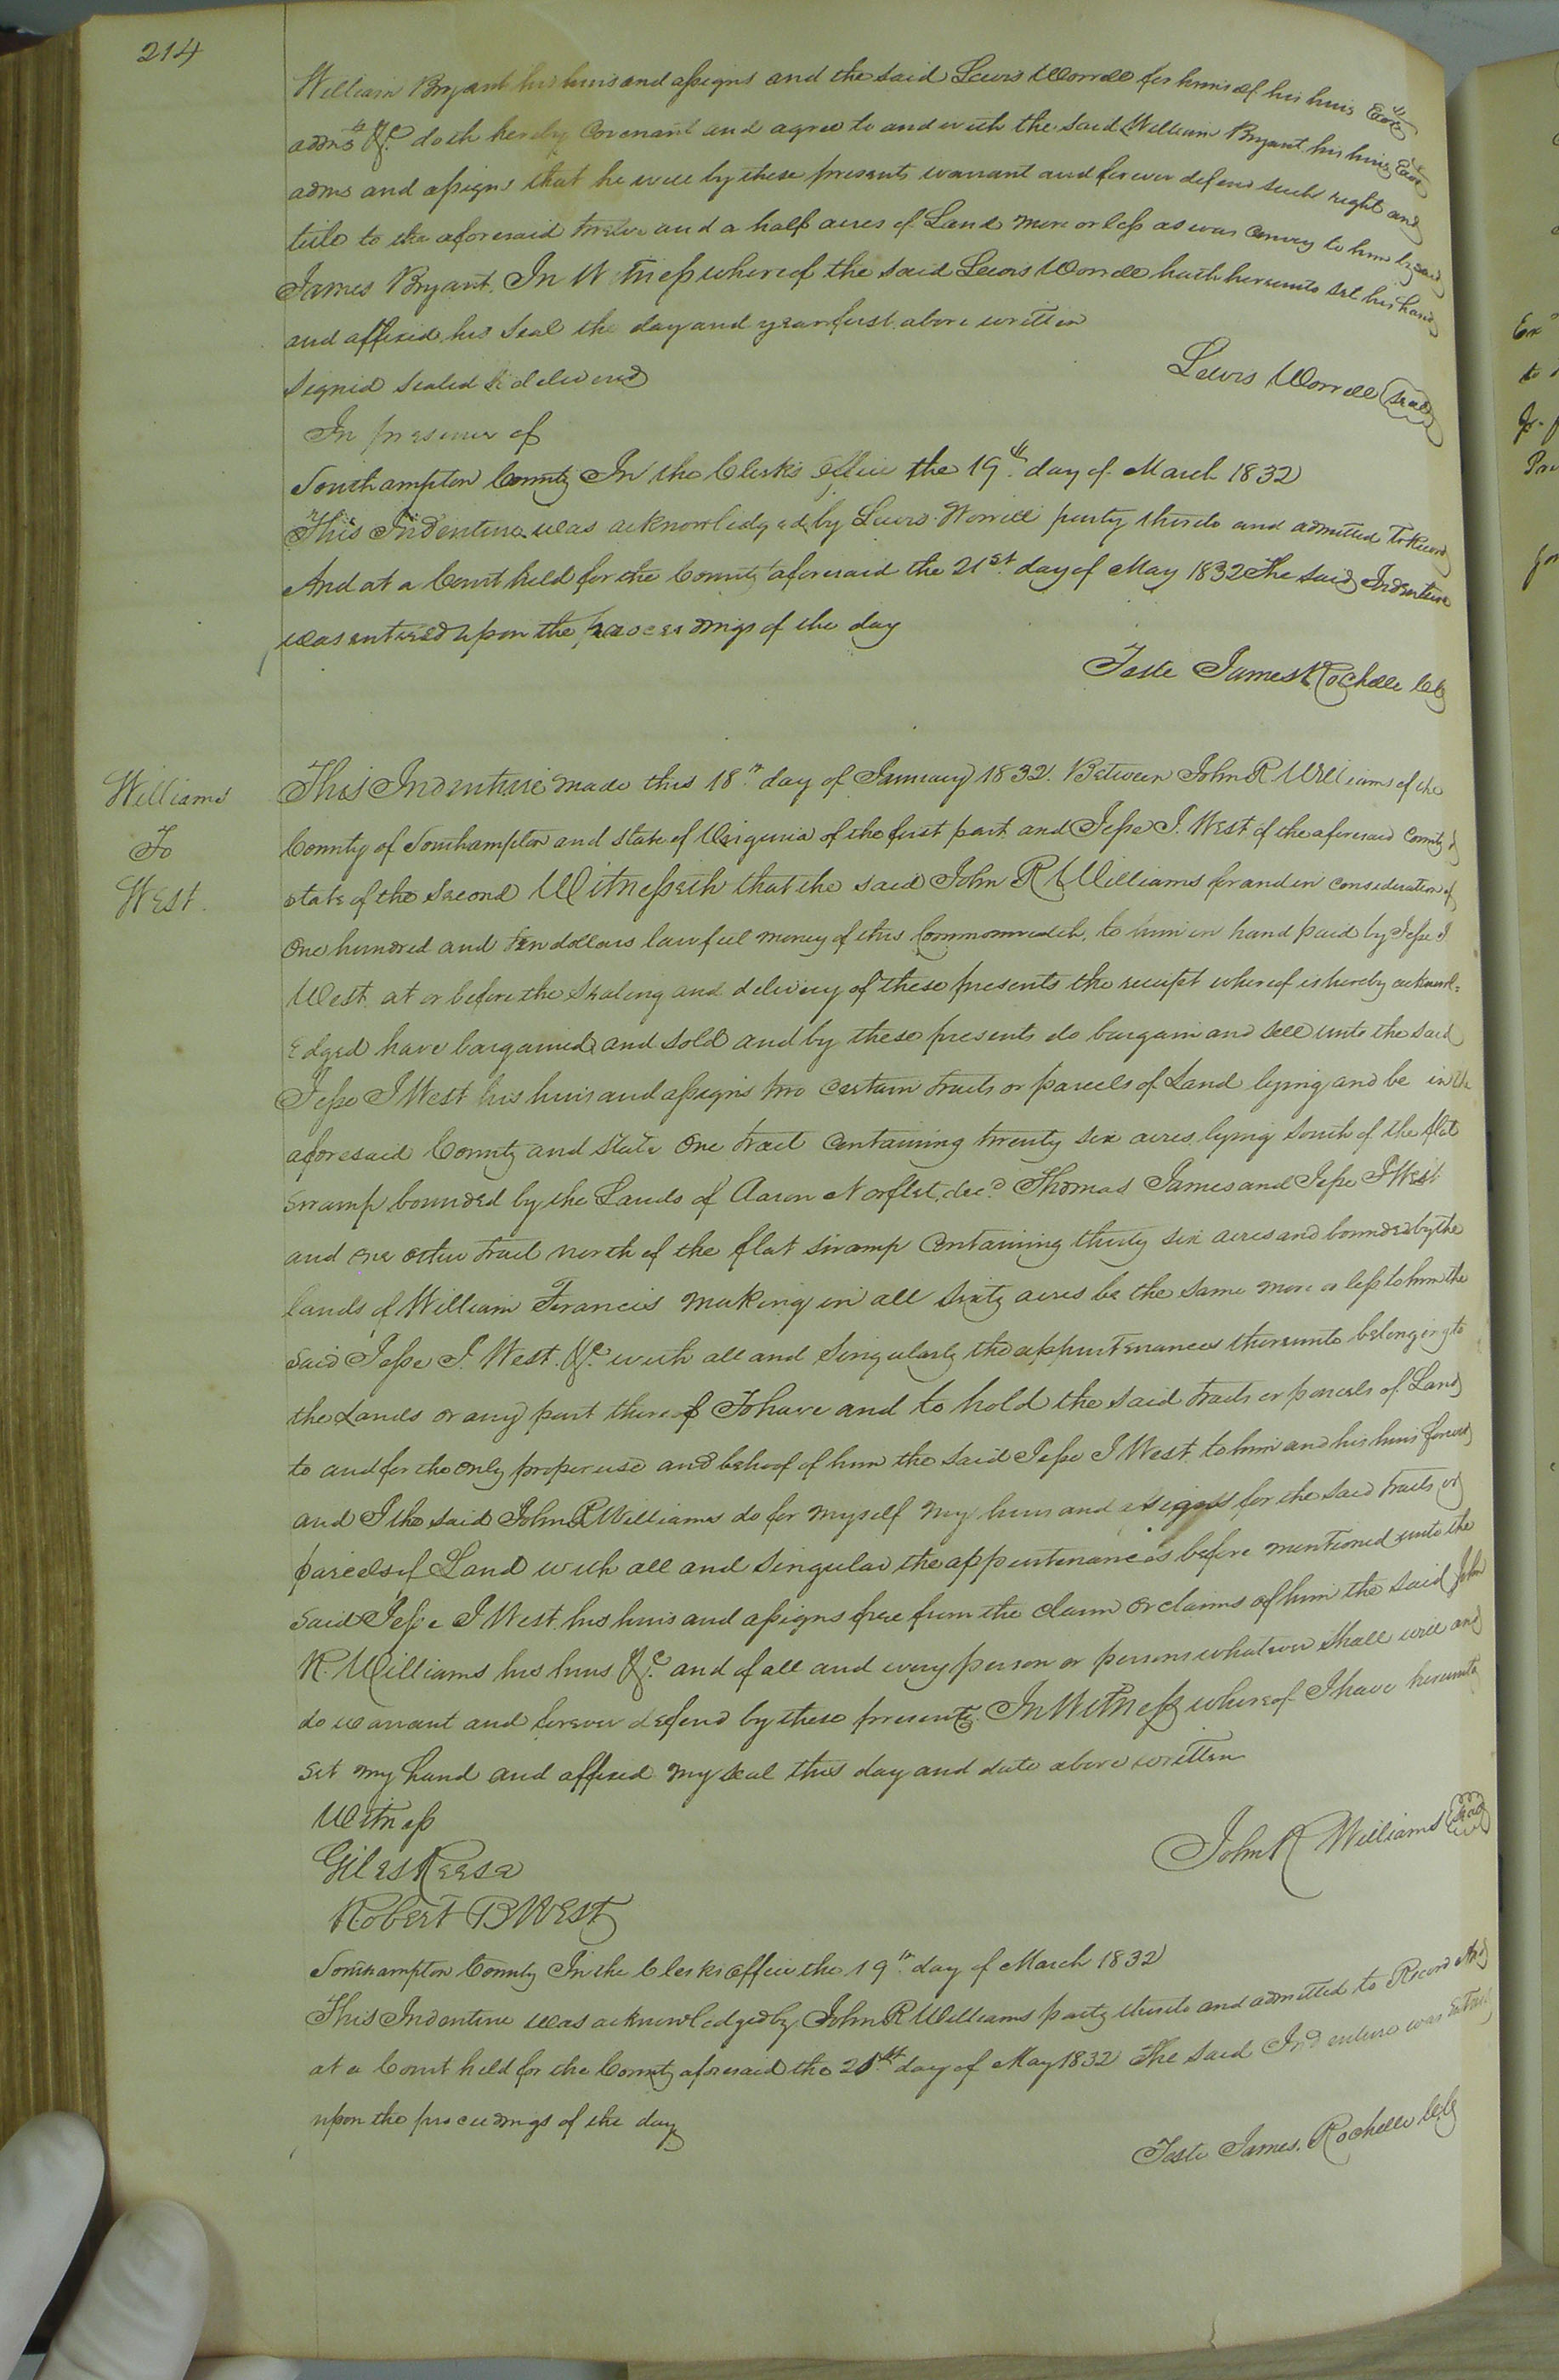 214
William Bryant his heirs and assigns and the said Lewis Worrell for himself his heirs Exors
adms &c. doth hereby Covenant and agree to and with the said William Bryant his heirs Exors
adms and assigns that he will by these presents warrant and forever defend such right and
title to the aforesaid twelve and a half acres of Land more or less as was convey to him by said
James Bryant. In Witness whereof the said Lewis Worrell hath hereunto set his hand
and affixed his Seal the day and year first above written
Signed Sealed & delivered
Lewis Worrell Seal
In presence of
Southampton County In the Clerk's Office the 19th day of March 1832
This Indenture was acknowledged by Lewis Worrell party thereto and admitted to Record
And at a Court held for the County aforesaid the 21st day of May 1832 The said Indenture
was entered upon the proceedings of the day
Teste James Rochelle Clk
Williams
To
West.
This Indenture made this 18th day of January 1832. Between John R Williams of the
County of Southampton and State of Virginia of the first part and Jesse J. West of the aforesaid County &
State of the Second Witnesseth that the said John R Williams for and in consideration of
One hundred and ten dollars lawful money of this Commonwealth, to him in hand paid by Jesse J
West at or before the Sealing and delivery of these presents the receipt whereof is hereby acknowl=
edged have bargained and sold and by these presents do bargain and sell unto the said
Jesse J West his heirs and assigns two certain tracts or parcels of Land lying and be in the
aforesaid County and State One tract Containing twenty six acres lying South of the flat
swamp bounded by the Lands of Aaron Norflet, decd Thomas James and Jesse J West
and one other tract north of the flat swamp Containing thirty six acres and bounded by the
lands of William Francis making in all Sixty acres be the same more or less to him the
said Jesse J. West &c. with all and Singularly the appurtenances thereunto belonging to
the Lands or any part thereof To have and to hold the said tracts or parcels of Land
to and for the only proper use and behoof of him the said Jesse J West to him and his heirs forever
and I the said John R Williams do for myself my heirs and assigns for the said tracts or
parcels of Land with all and singular the appurtenances before mentioned unto the
Said Jesse J West his heirs and assigns free from the claim or claims of him the said John
R. Williams his heirs &c. and of all and every person or persons whatever Shall will and
do warrant and forever defend by these presents In Witness whereof I have hereunto
Set my hand and affixed my seal this day and date above written
Witness
John R Williams Seal
Giles Reese
Robert B West
Southampton County In the Clerks Office the 19th day of March 1832
This Indenture was acknowledged by John R Williams party thereto and admitted to Record And
at a Court held for the County aforesaid the 21st day of May 1832 The said Indenture was entered
upon the proceedings of the day
Teste James. Rochelle Clk